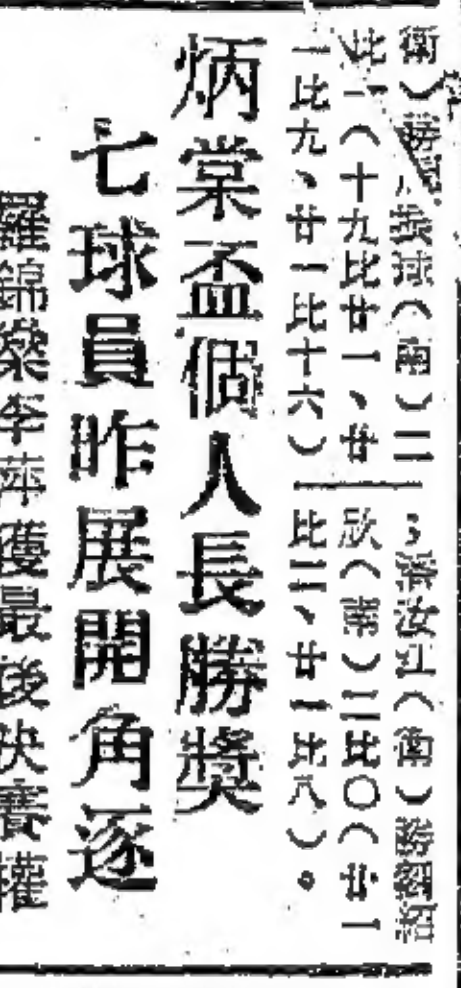 衛）勝振球（南）二
比一（十九比廿一、廿
一比九、廿一比十六）
；潘汝江（衛）勝劉紹
欣（南）二比〇（廿一
比三、廿一比八）。
炳棠盃個人長勝獎
七球員昨展開角逐
羅錦燊李萍獲最後決賽權